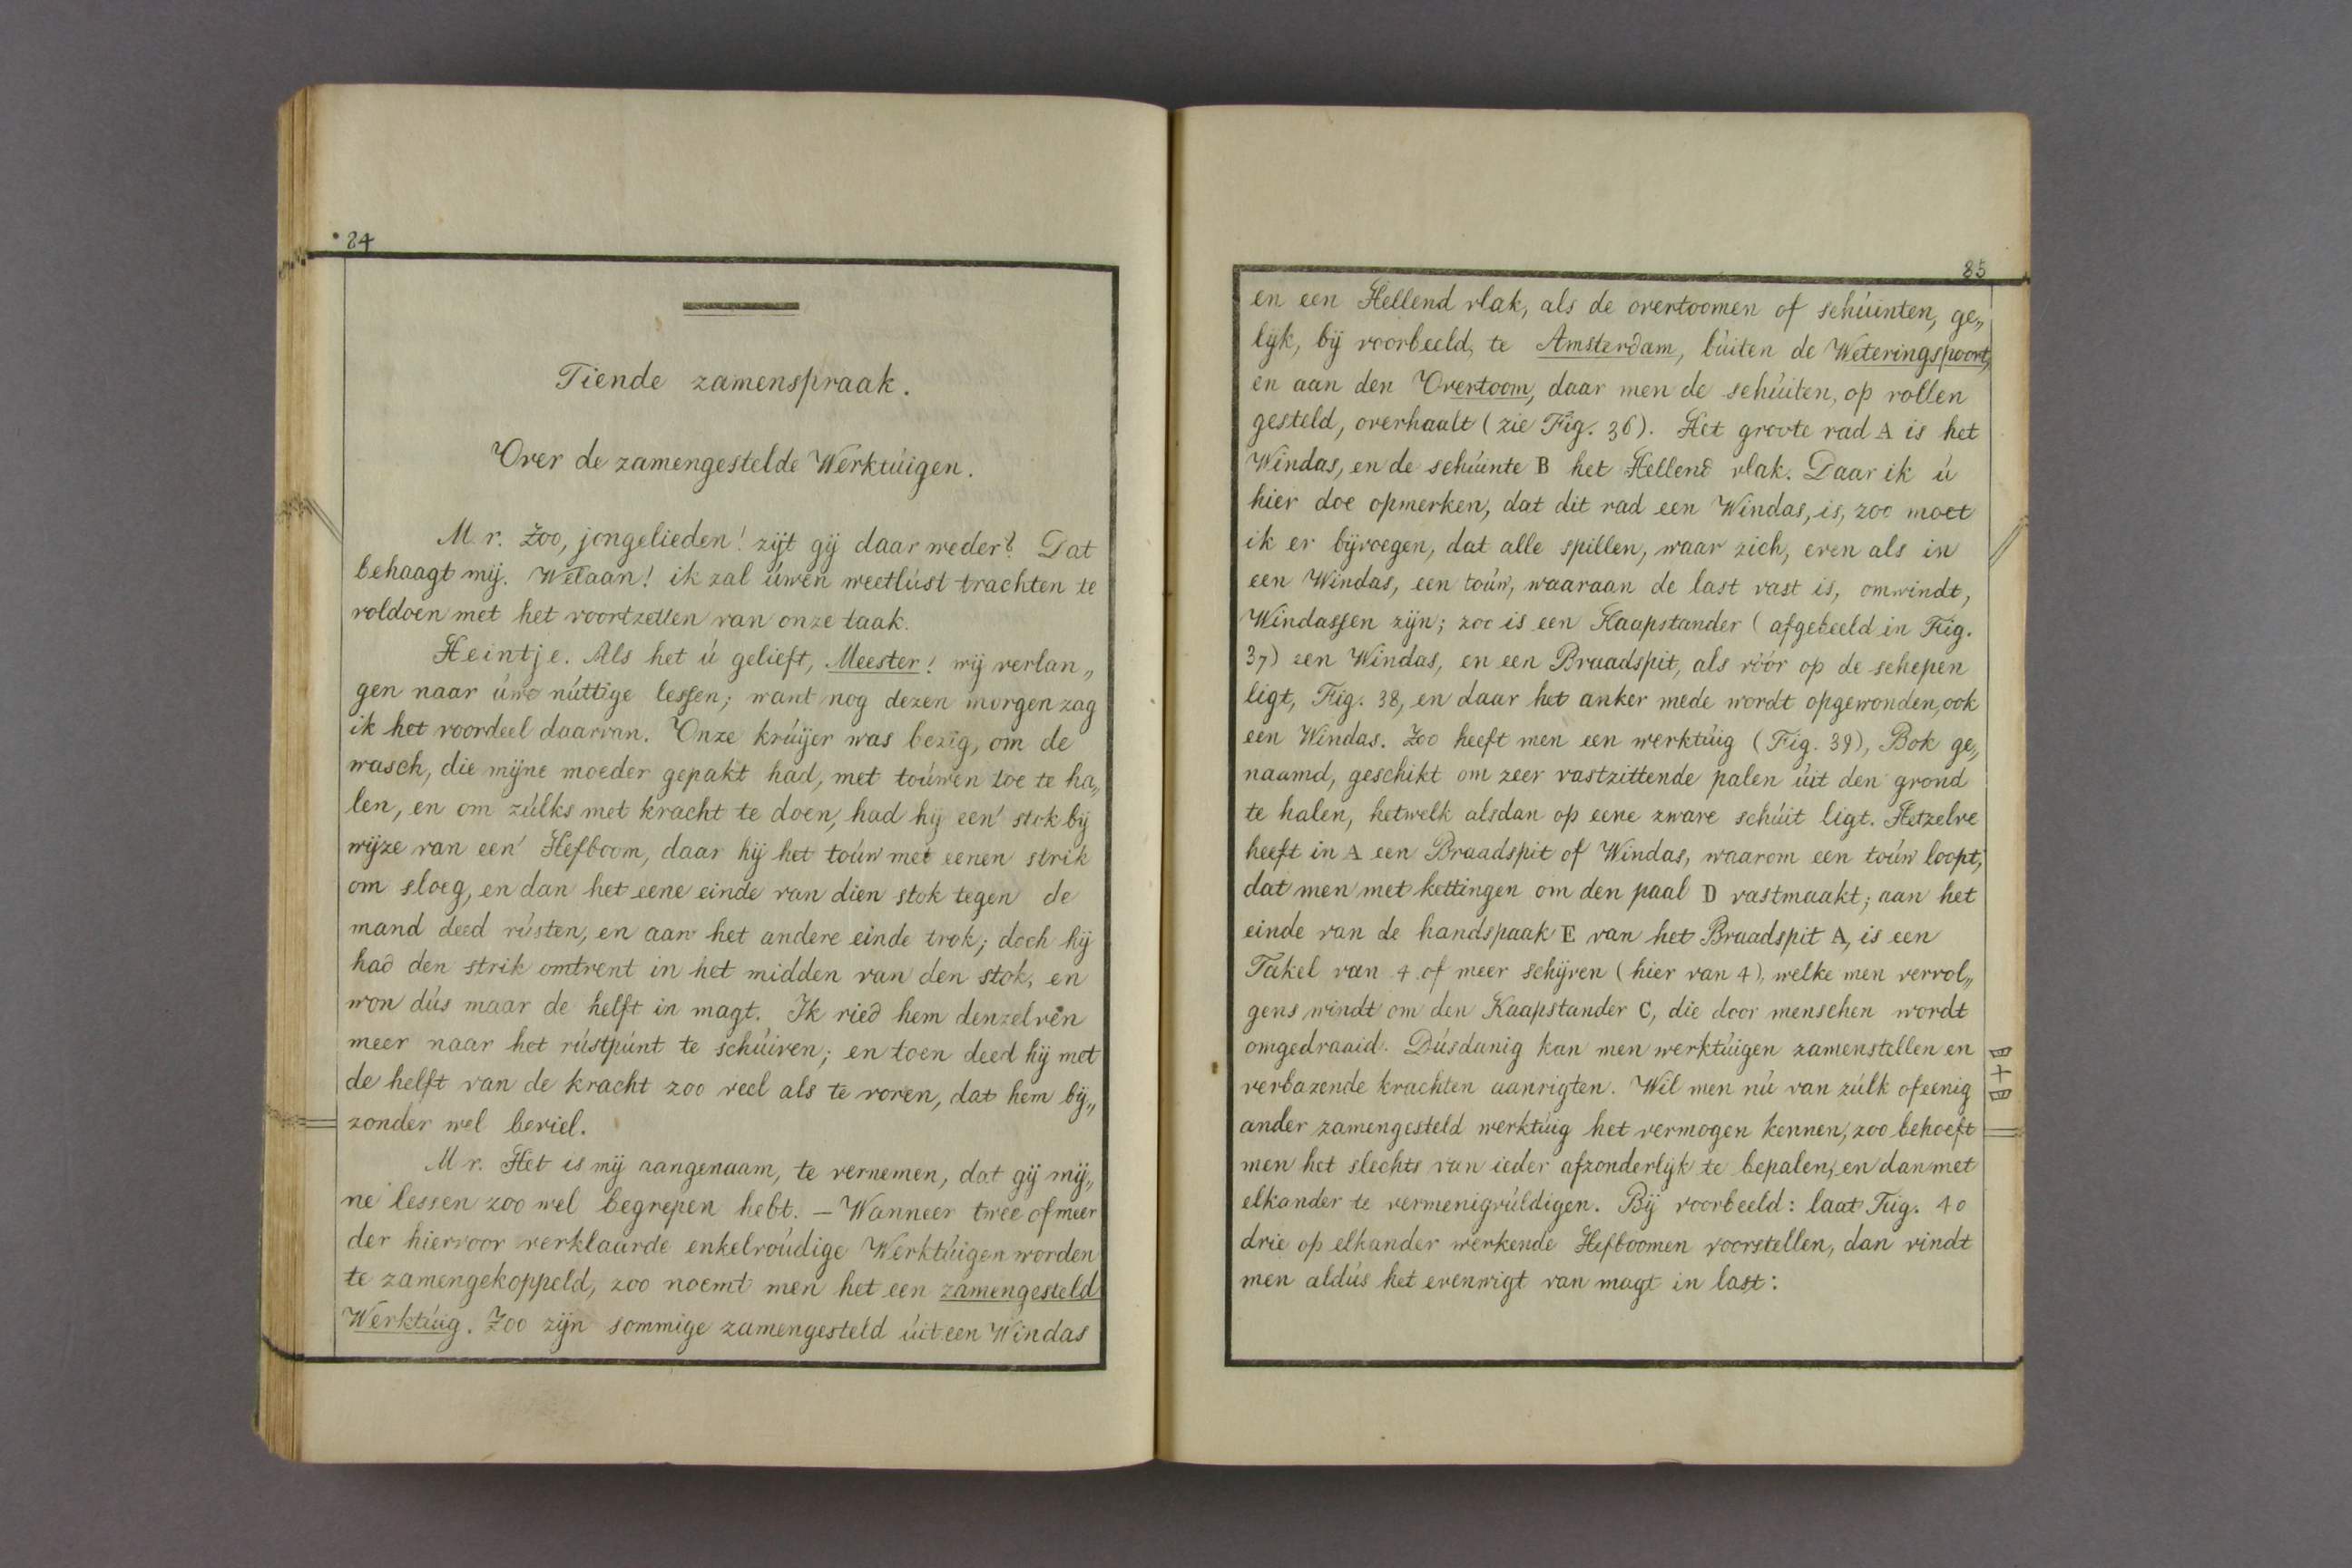 84
Tiende zamenspraak.
Over de zamengestelde Werktúigen.
M r. Zoo, jongelieden! zijt gij daar weder? Dat
behaagt mij. Welaan! ik zal úwen weetlúst trachten te
voldoen met het voortzetten van onze taak.
Heintje. Als het ú gelieft, Meester! wij verlan„
gen naar úwe núttige lessen; want nog dezen morgen zag
ik het voordeel daarvan. Onze krúijer was bezig, om de
wasch, die mijne moeder gepakt had, met toúwen toe te ha„
len, en om zúlks met kracht te doen, had hij een' stok bij
wijze van een' Hefboom, daar hij het toúw met eenen strik
om sloeg, en dan het eene einde van dien stok tegen de
mand deed rústen, en aan het andere einde trok; doch hij
had den strik omtrent in het midden van den stok, en
won dús maar de helft in magt. Ik ried hem denzelven
meer naar het rústpúnt te schúiven; en toen deed hij met
de helft van de kracht zoo veel als te voren, dat hem bij„
zonder wel beviel.
M r. Het is mij aangenaam, te vernemen, dat gij mij„
ne lessen zoo wel begrepen hebt. — Wanneer twee of meer
der hiervoor verklaarde enkelvoúdige Werktúigen worden
te zamengekoppeld, zoo noemt men het een zamengesteld
Werktúig. Zoo zijn sommige zamengesteld úit een Windas
85
en een Hellend vlak, als de overtoomen of schúinten, ge„
lijk, bij voorbeeld, te Amsterdam, búiten de Weteringspoort,
en aan den Overtoom, daar men de schúiten, op rollen
gesteld, overhaalt (zie Fig. 36). Het groote rad A is het
Windas, en de schúinte B het Hellend vlak. Daar ik ú
hier doe opmerken, dat dit rad een Windas, is, zoo moet
ik er bijvoegen, dat alle spillen, waar zich, even als in
een Windas, een toúw, waaraan de last vast is, omwindt,
Windassen zijn; zoo is een Kaapstander (afgebeeld in Fig.
37) een Windas, en een Braadspit, als vóór op de schepen
ligt, Fig. 38, en daar het anker mede wordt opgewonden, ook
een Windas. Zoo heeft men een werktúig (Fig. 39), Bok ge„
naamd, geschikt om zeer vastzittende palen úit den grond
te halen, hetwelk alsdan op eene zware schúit ligt. Hetzelve
heeft in A een Braadspit of Windas, waarom een toúw loopt,
dat men met kettingen om den paal D vastmaakt; aan het
einde van de handspaak E van het Braadspit A, is een
Takel van 4 of meer schijven (hier van 4), welke men vervol„
gens windt om den Kaapstander C, die door menschen wordt
omgedraaid. Dúsdanig kan men werktúigen zamenstellen en
verbazende krachten aanrigten. Wil men nú van zúlk of eenig
ander zamengesteld werktúig het vermogen kennen, zoo behoeft
men het slechts van ieder afzonderlijk te bepalen, en dan met
elkander te vermenigvúldigen. Bij voorbeeld: laat Fig. 40
drie op elkander werkende Hefboomen voorstellen, dan vindt
men aldús het evenwigt van magt in last: